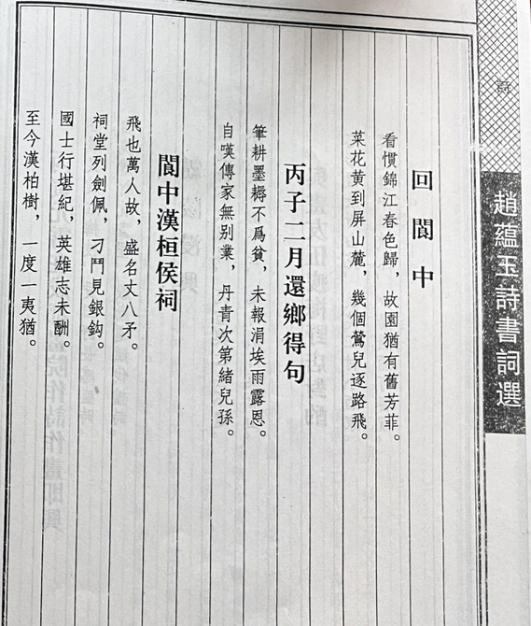 趙蘊玉詩書詞選
回閬中
看慣錦江春色歸，故園猶有舊芳菲。
菜花黃到屏山麓，幾個鶯兒逐路飛。
丙子二月還鄉得句
筆耕墨耨不爲貧，未報涓埃雨露恩。
自嘆傳家無別業，丹青次第緒兒孫。
閬中漢桓侯祠
飛也萬人故，盛名丈八矛。
祠堂列劍佩，刁鬥見銀鈎。
國士行堪紀，英雄志未酬。
至今漢柏樹，一度一夷猶。